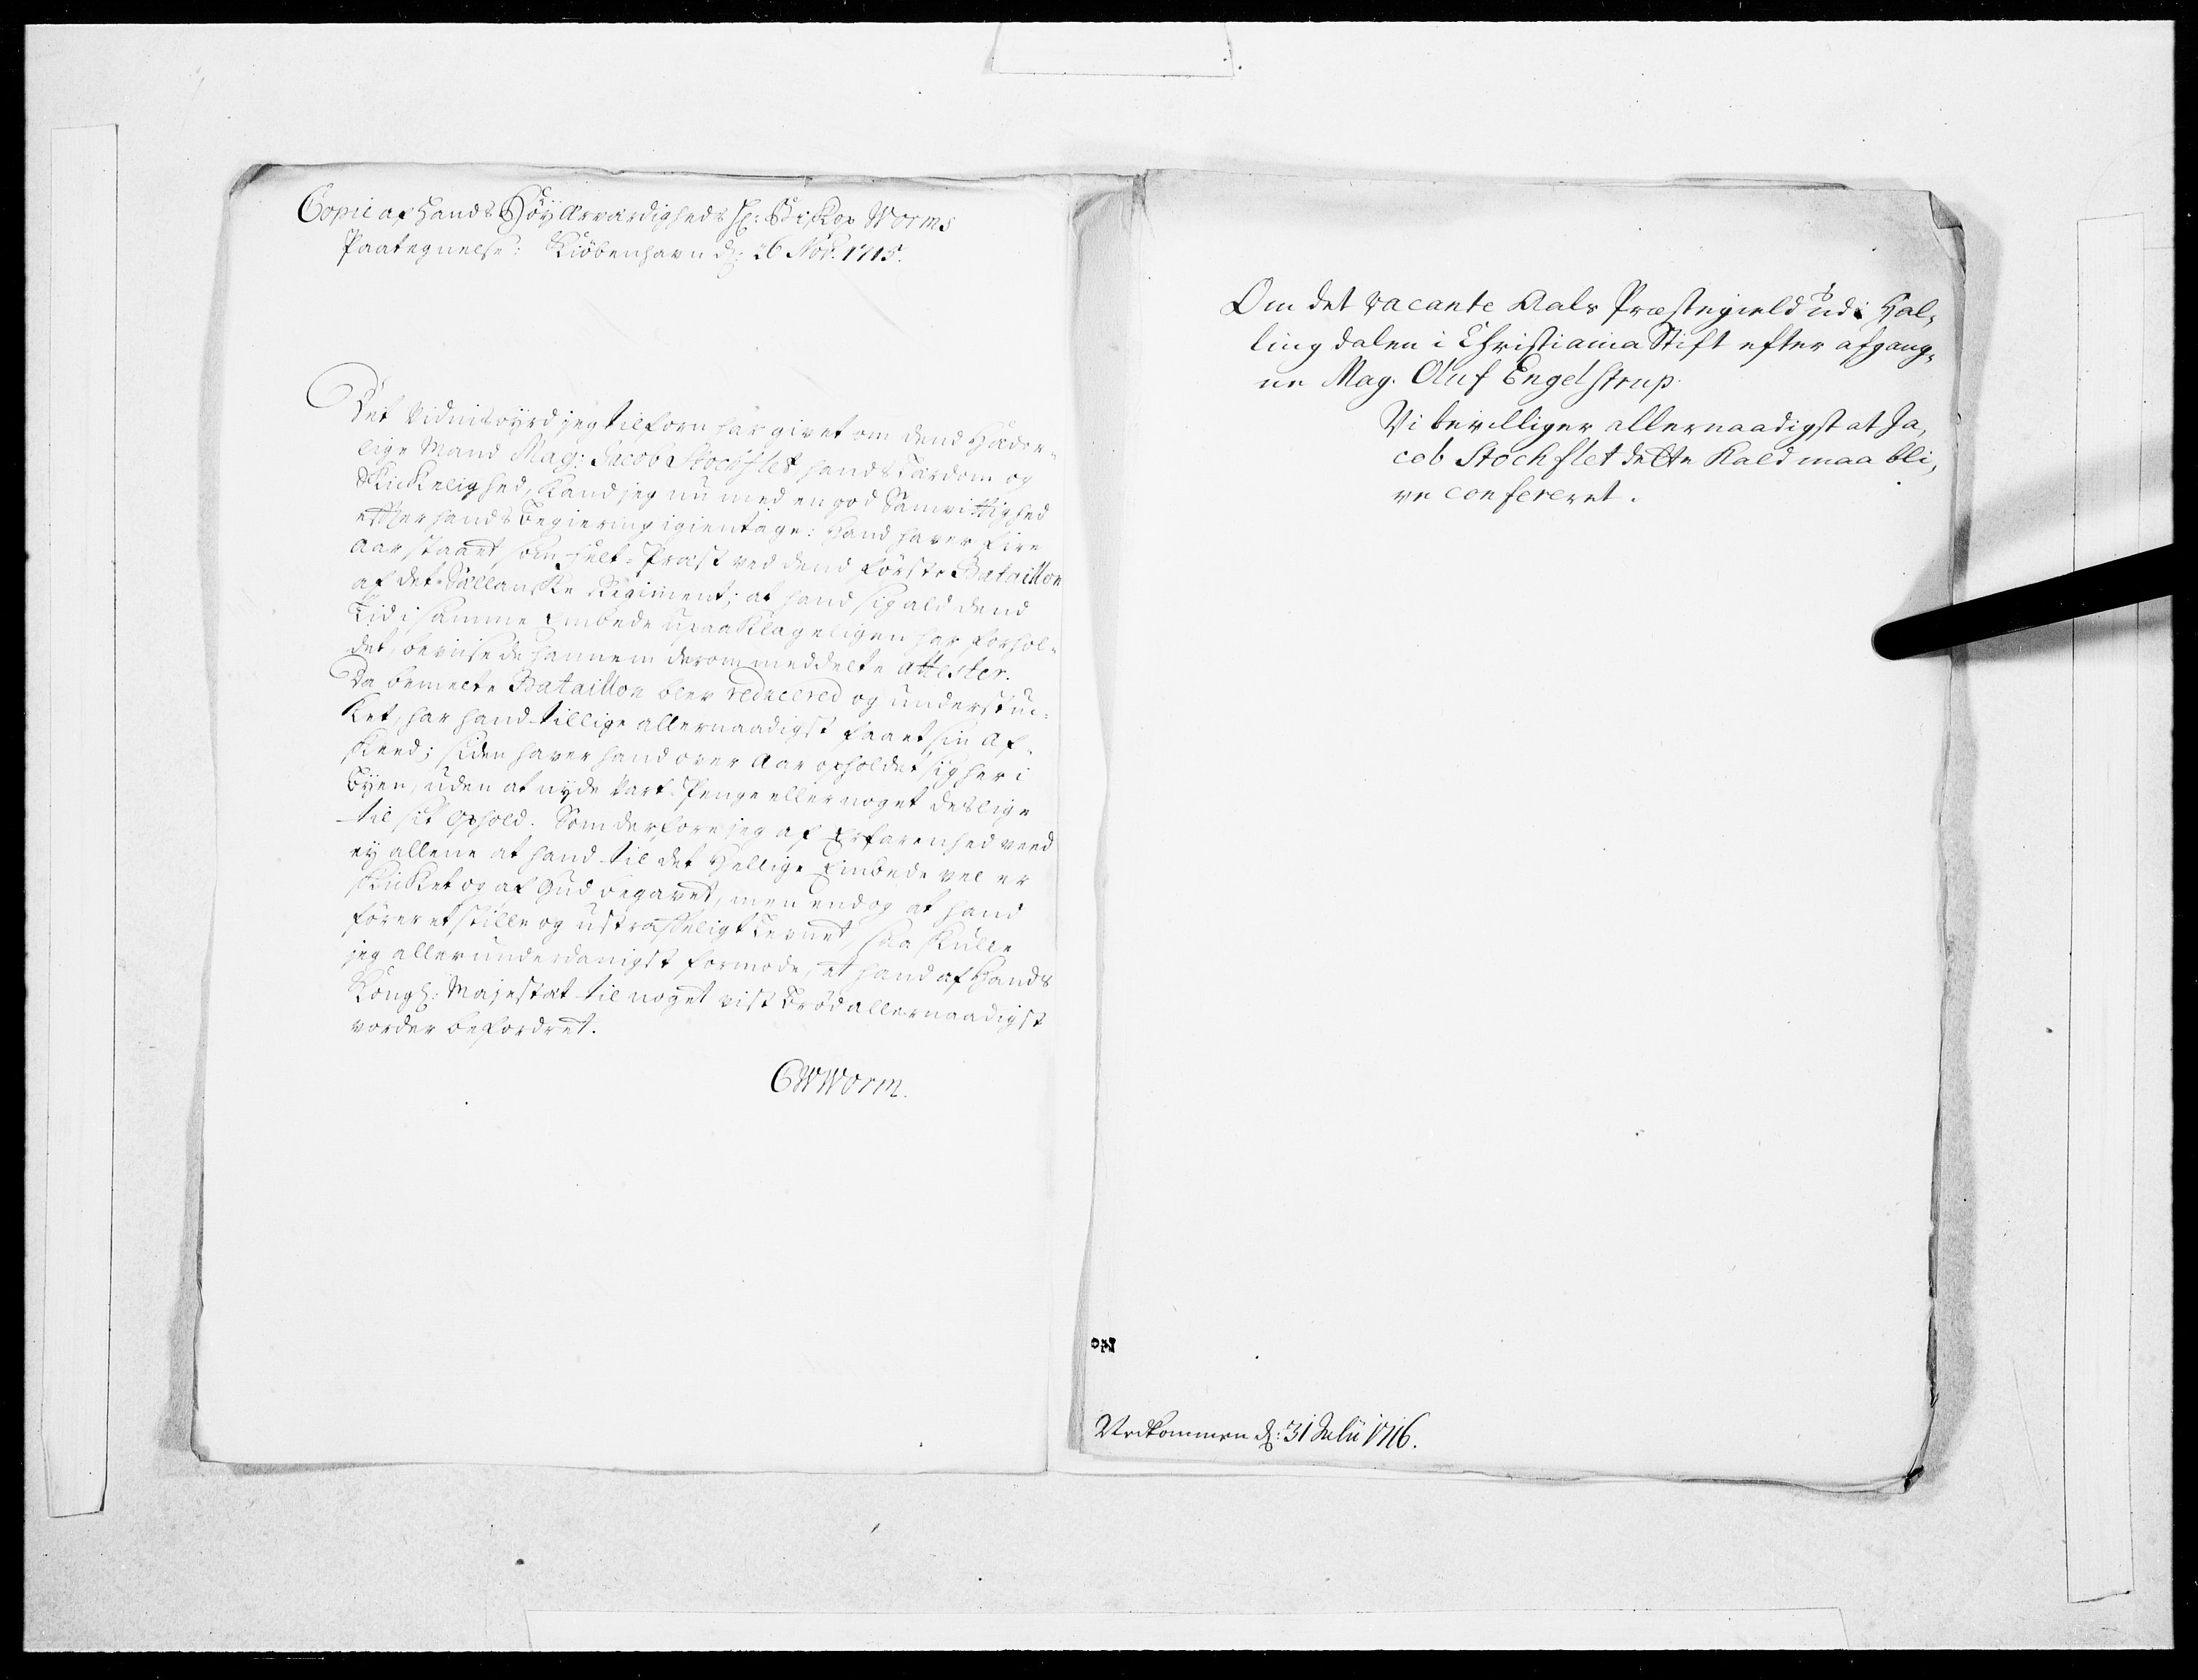 Copie af Hands HöyArværdigheds Hr: Biskop Worms
Paategnelse: Kiöbenhavn d: 26 Nov: 1715.
Det Vidnisbyrd jeg tilforn har givet om dend Hæder-
lige Mand Mag: Jacob Stockflet hands Lærdom og
Skickelighed, kand jeg nu med en god Samvittighed
efter hands Begiering igientage: Hand haver fire
Aar staaet som Felt-Præst ved dend förste Bataillon
af det Sællanske Regiment; at hand sig ald dend
Tid i samme Embede upaaklageligen har forhol-
det, beviise de hannem derom meddelte Attester.
Da bemelte Bataillon blev reducered og understuc-
ket, har hand tillige allernaadigst faaet sin Af-
skeed; siden haver hand over Aar opholdet sig her i
Byen, uden at nyde Vart-Penge eller noget deslige
til sit Ophold. Som derfore jeg af Erfarenhed veed
ey allene at hand til det Hellige Embede vel er
skicket og af Gud begavet, men endog at hand
förer et stille og ustraffeligt Levnet, saa skulle
jeg allerunderdanigst formode, at hand af Hands
Kongl: Majestæt til noget vist Bröd allernaadigst
vorder befordret.
CWWorm.
Om det vacante Aals Præstegield udi Hal,
lingdalen i Christiania Stift efter afgang,
ne Mag. Oluf Engelstrup.
Vi bevilliger allernaadigst at Ja,
cob Stockflet dette Kald maa bli,
ve confereret.
Vedkommen d: 31 Julii 1716.